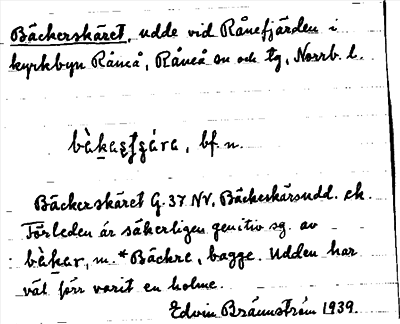 Bäckerskäret, udde vid Rånefjärden i
kyrkbyn Råneå, Råneå sn och tg, Norrb. l.
bf. n.
Bäckerskäret G. 37 NV, Bäckerskärsudd. ek.
Förleden är säkerligen genitiv sg. av
bàkar, m. *Bäckre, bagge. Udden har
väl förr varit en holme.
Edvin Brännström 1939.